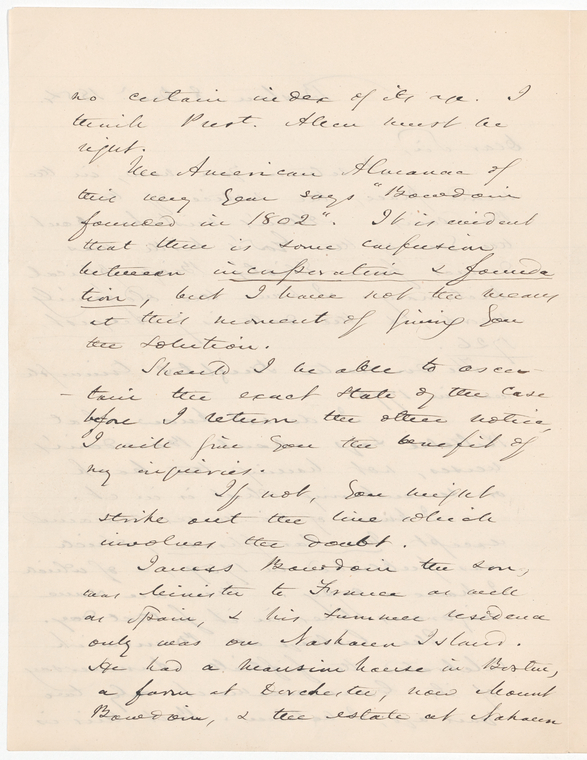 no certain index of its age. I
think Prest. Allen must be
right.
The American Almanac of
this very year says "Bowdoin
founded in 1802". It is evident
that there is some confusion
between incorporation & founda
tion, but I have not the means
at this moment of giving you
the solution.
Should I be able to ascer
- tain the exact state of the case
before I return the other notice,
I will give you the benefit of
my inquiries.
If not, you might
strike out the line which
involves the doubt.
James Bowdoin the son,
was Minister to France as well
as Spain, & his summer residence
only was on Nashaun Island.
He had a mansion house in Boston,
a farm at Dorchester, now Mount
Bowdoin, & the estate at Nahaun